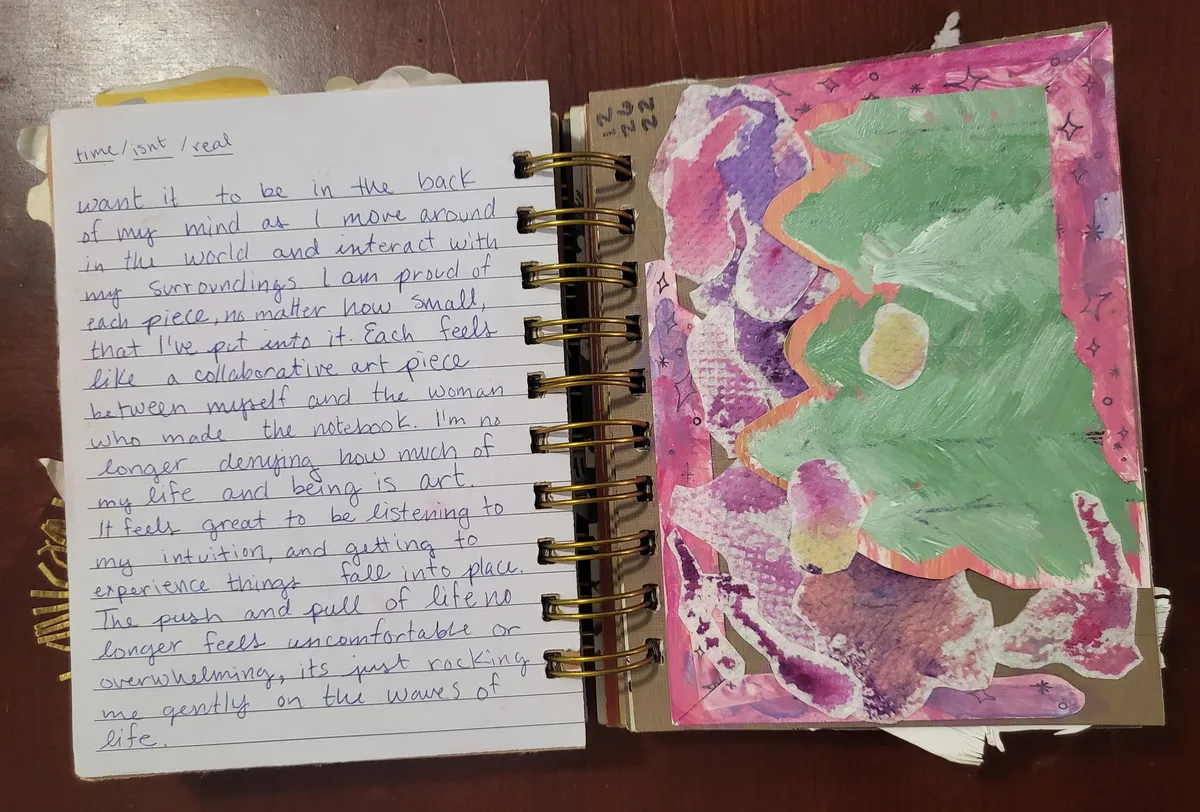 time/isnt/real
want it to be in the back
of my mind as I move around
in the world and interact with
my surroundings I am proud of
each piece, no matter how small,
that I've put into it. Each feels
like a collaborative art piece
between myself and the woman
who made the notebook. I'm no
longer denying how much of
my life and being is art.
It feels great to be listening to
my intuition, and getting to
experience things fall into place.
The push and pull of life no
longer feels uncomfortable or
overwhelming, its just rocking
me gently on the waves of
life.
12
26
22